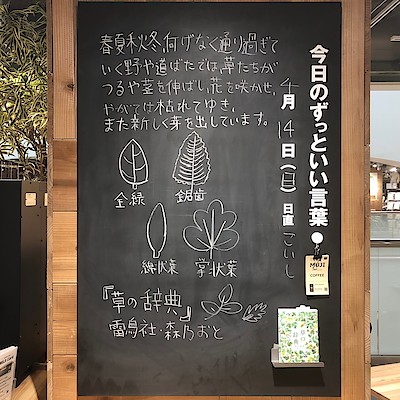 今日のずっといい言葉
4月14日(日)日直こいし
春夏秋冬何げなく通り過ぎて
いく野や道ばたでは、草たちが
つるや茎を伸ばし、花を咲かせ、
やがては枯れてゆき、
また新しく芽を出しています。
全縁
鋸歯
線状葉
掌状葉
『草の辞典』
雷鳥社・森乃おと
MUJI
COFFEE
草の辞典